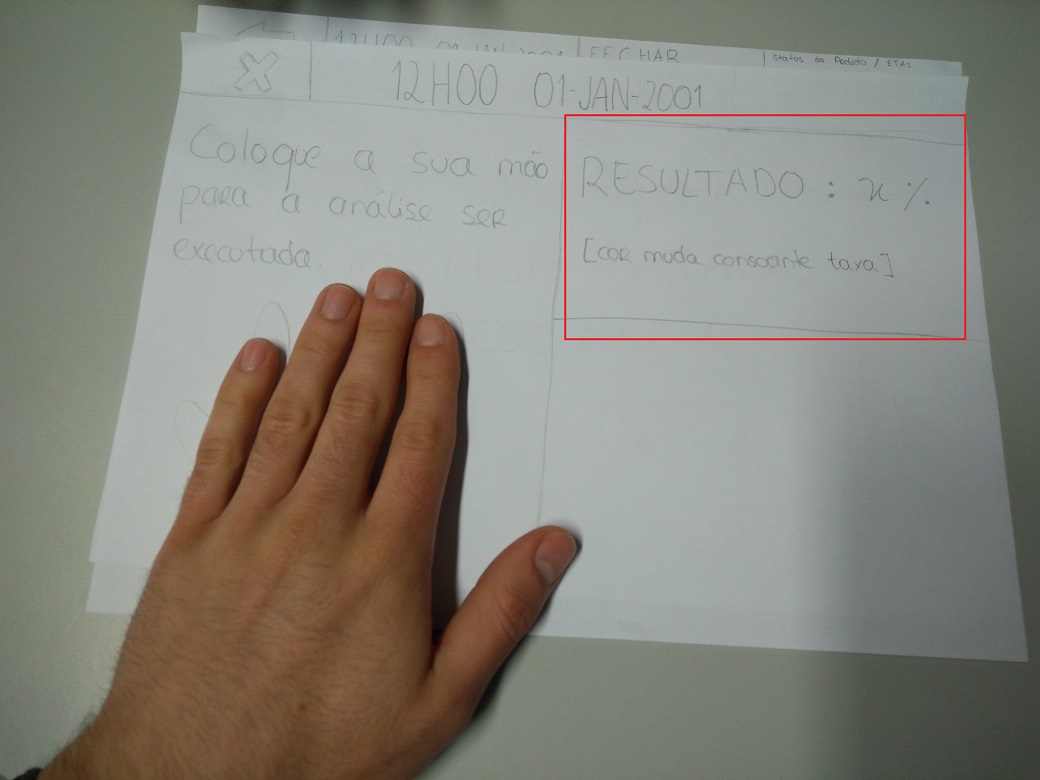 FECHAR
Status do Pedido / ETA:
12H00 01-JAN-2001
Coloque a sua mão
para a análise ser
executada.
RESULTADO : x %.
[cor muda consoante taxa]